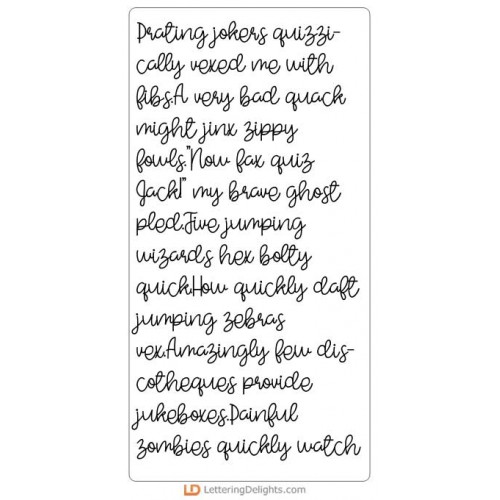 Prating jokers quizzi-
cally vexed me with
fibs.A very bad quack
might jinx zippy
fowls."Now fax quiz
Jack!" my brave ghost
pled.Five jumping
wizards hex bolty
quick.How quickly daft
jumping zebras
vex.Amazingly few dis-
cotheques provide
jukeboxes.Painful
zombies quickly watch
LD LetteringDelights.com